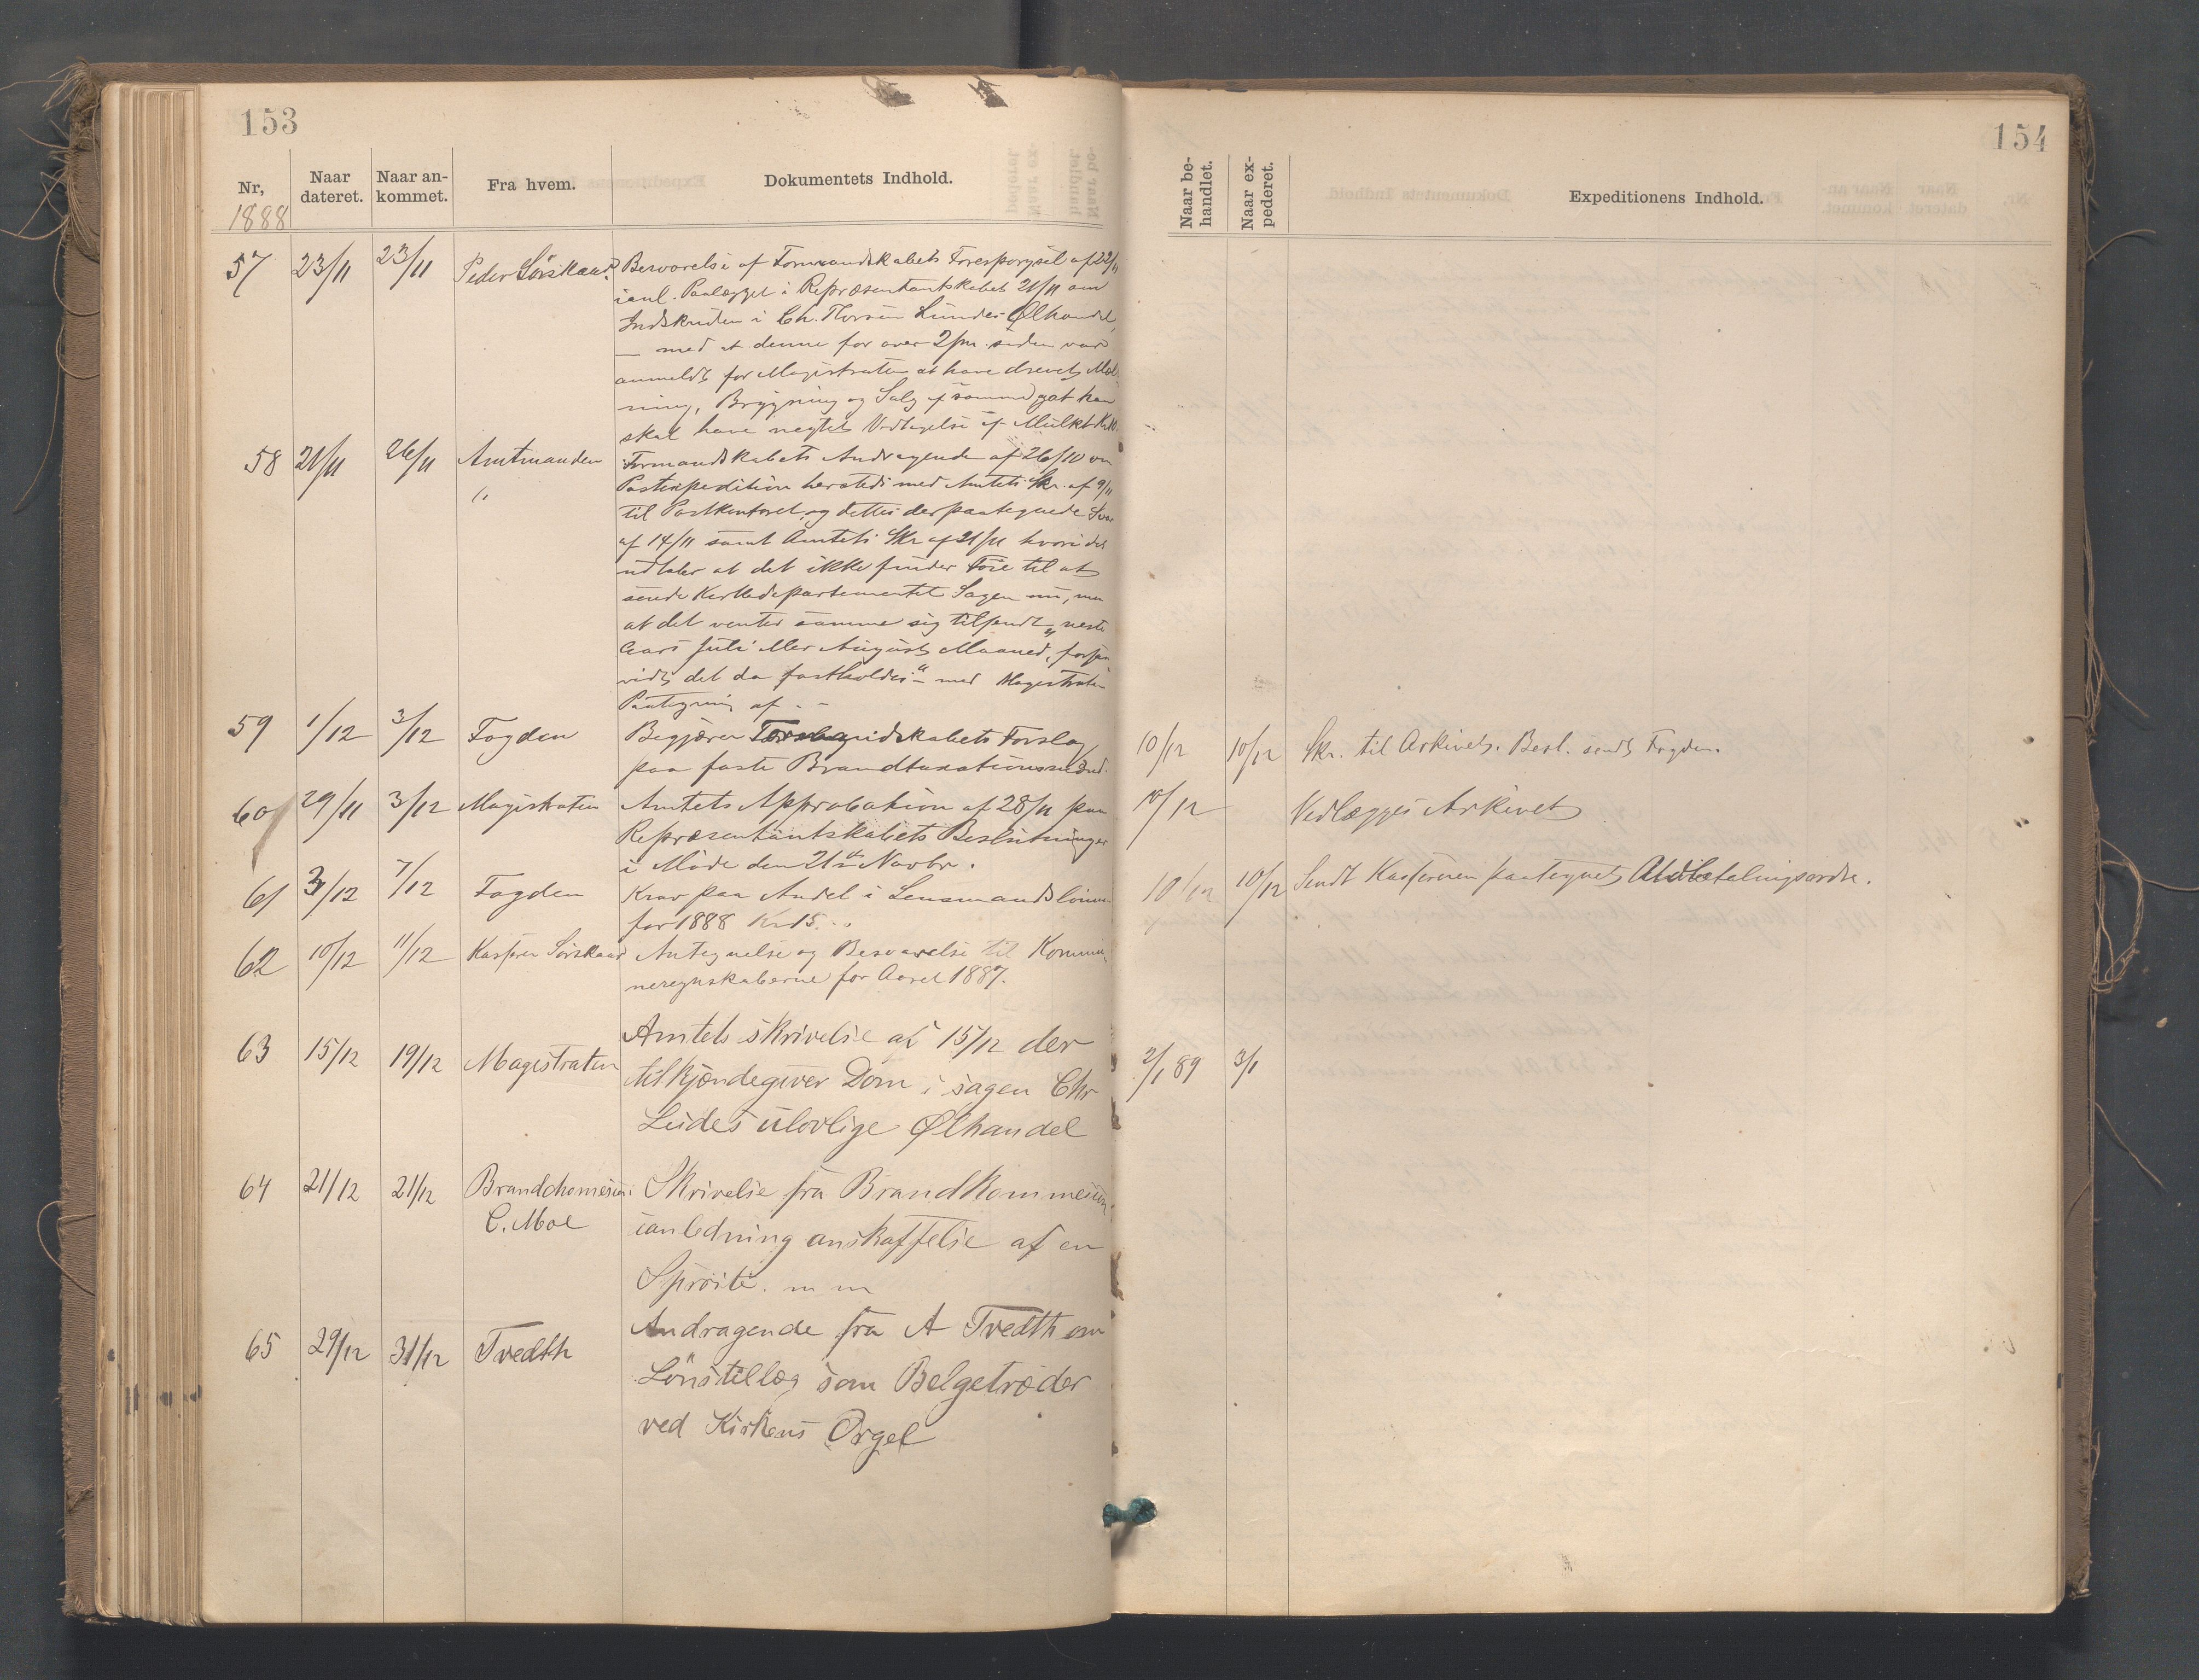 153
Nr,
Naar dateret.
Naar ankommet.
Fra hvem.
Dokumentets Indhold.
1888
57 23/11 23/11 Peder Sörskaar Besvarelse af Formandskabets Forespørgsel af 22/11
ianl. Paalægget i Repræsentantskabet 21/11 om
i Chr. Thorsen Lundes Ølhandel,
— med at denne for over 2/m. siden var
anmeldt for Magistraten at have drevet
Brygning og Salg af samme at han
skal have negtet Vedtagelse af
58 21/11 26/11 Amtmanden Formandskabets Andragende af 26/10 om
" Postexpedition hersteds med Amtets Skr. af 9/11
til Postkontoret og dettes derpaategnede Svar
af 14/11 samt Amtets Skr af 21/11 hvori det
udtaler at det ikke finder Föie til at
sende Kirkedepartementet Sagen nu, men
at det venter samme sig tilsendt "neste
Aars Juli eller August Maaned, forsaa
vidt det da fastholdes" — med Magistratens
Paategning af - -
59 1/12 3/12 Fogden Begjærer Formandskabets Forslag
paa faste Brandtaxationsmænd.
60 29/11 3/12 Magistraten Amtets Approbation af 28/11 paa
Repræsentantskabets Beslutninger
i Møde den 21de Novbr.
61 3/12 7/12 Fogden Krav paa Andel i Lensmandslönn
for 1888 Kr 15. -
62 10/12 11/12 Kasserer Sörskaar Antegnelse og Besvarelse til Kommu-
neregnskaberne for Aaret 1887.
63 15/12 19/12 Magistraten Amtets skrivelse af 15/12 der
tilkjændegiver Dom i sagen Chr
Ludes ulovlige Ølhandel
64 21/12 21/12 Brandchomesion Skrivelse fra Brandkommesion
C. Moe ianledning anskaffelse af en
Sprøite. m m
65 29/12 31/12 Tvedth Andragende fra A Tvedth om
Lönstillæg som Belgetræder
ved Kirkens Orgel
154
Naar behandlet.
Naar expederet.
Expeditionens Indhold.
10/12 10/12 Skr. til Arkivet. Besl. sendt Fogden.
10/12 Vedlægges Arkivet
10/12 10/12 Sendt Kassereren paategnet Udbetalingsordre.
2/1 89 3/1